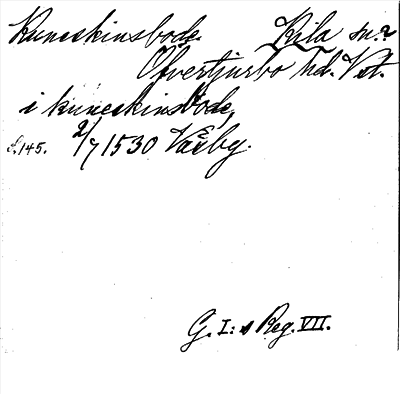 Kuneskinsbode. Kila sn.?
Ofvertjurbo hd. Vst.
i kuneskinsbode,
s. 145. 2/7 1530 Väsby.
G. I: s Reg. VII.